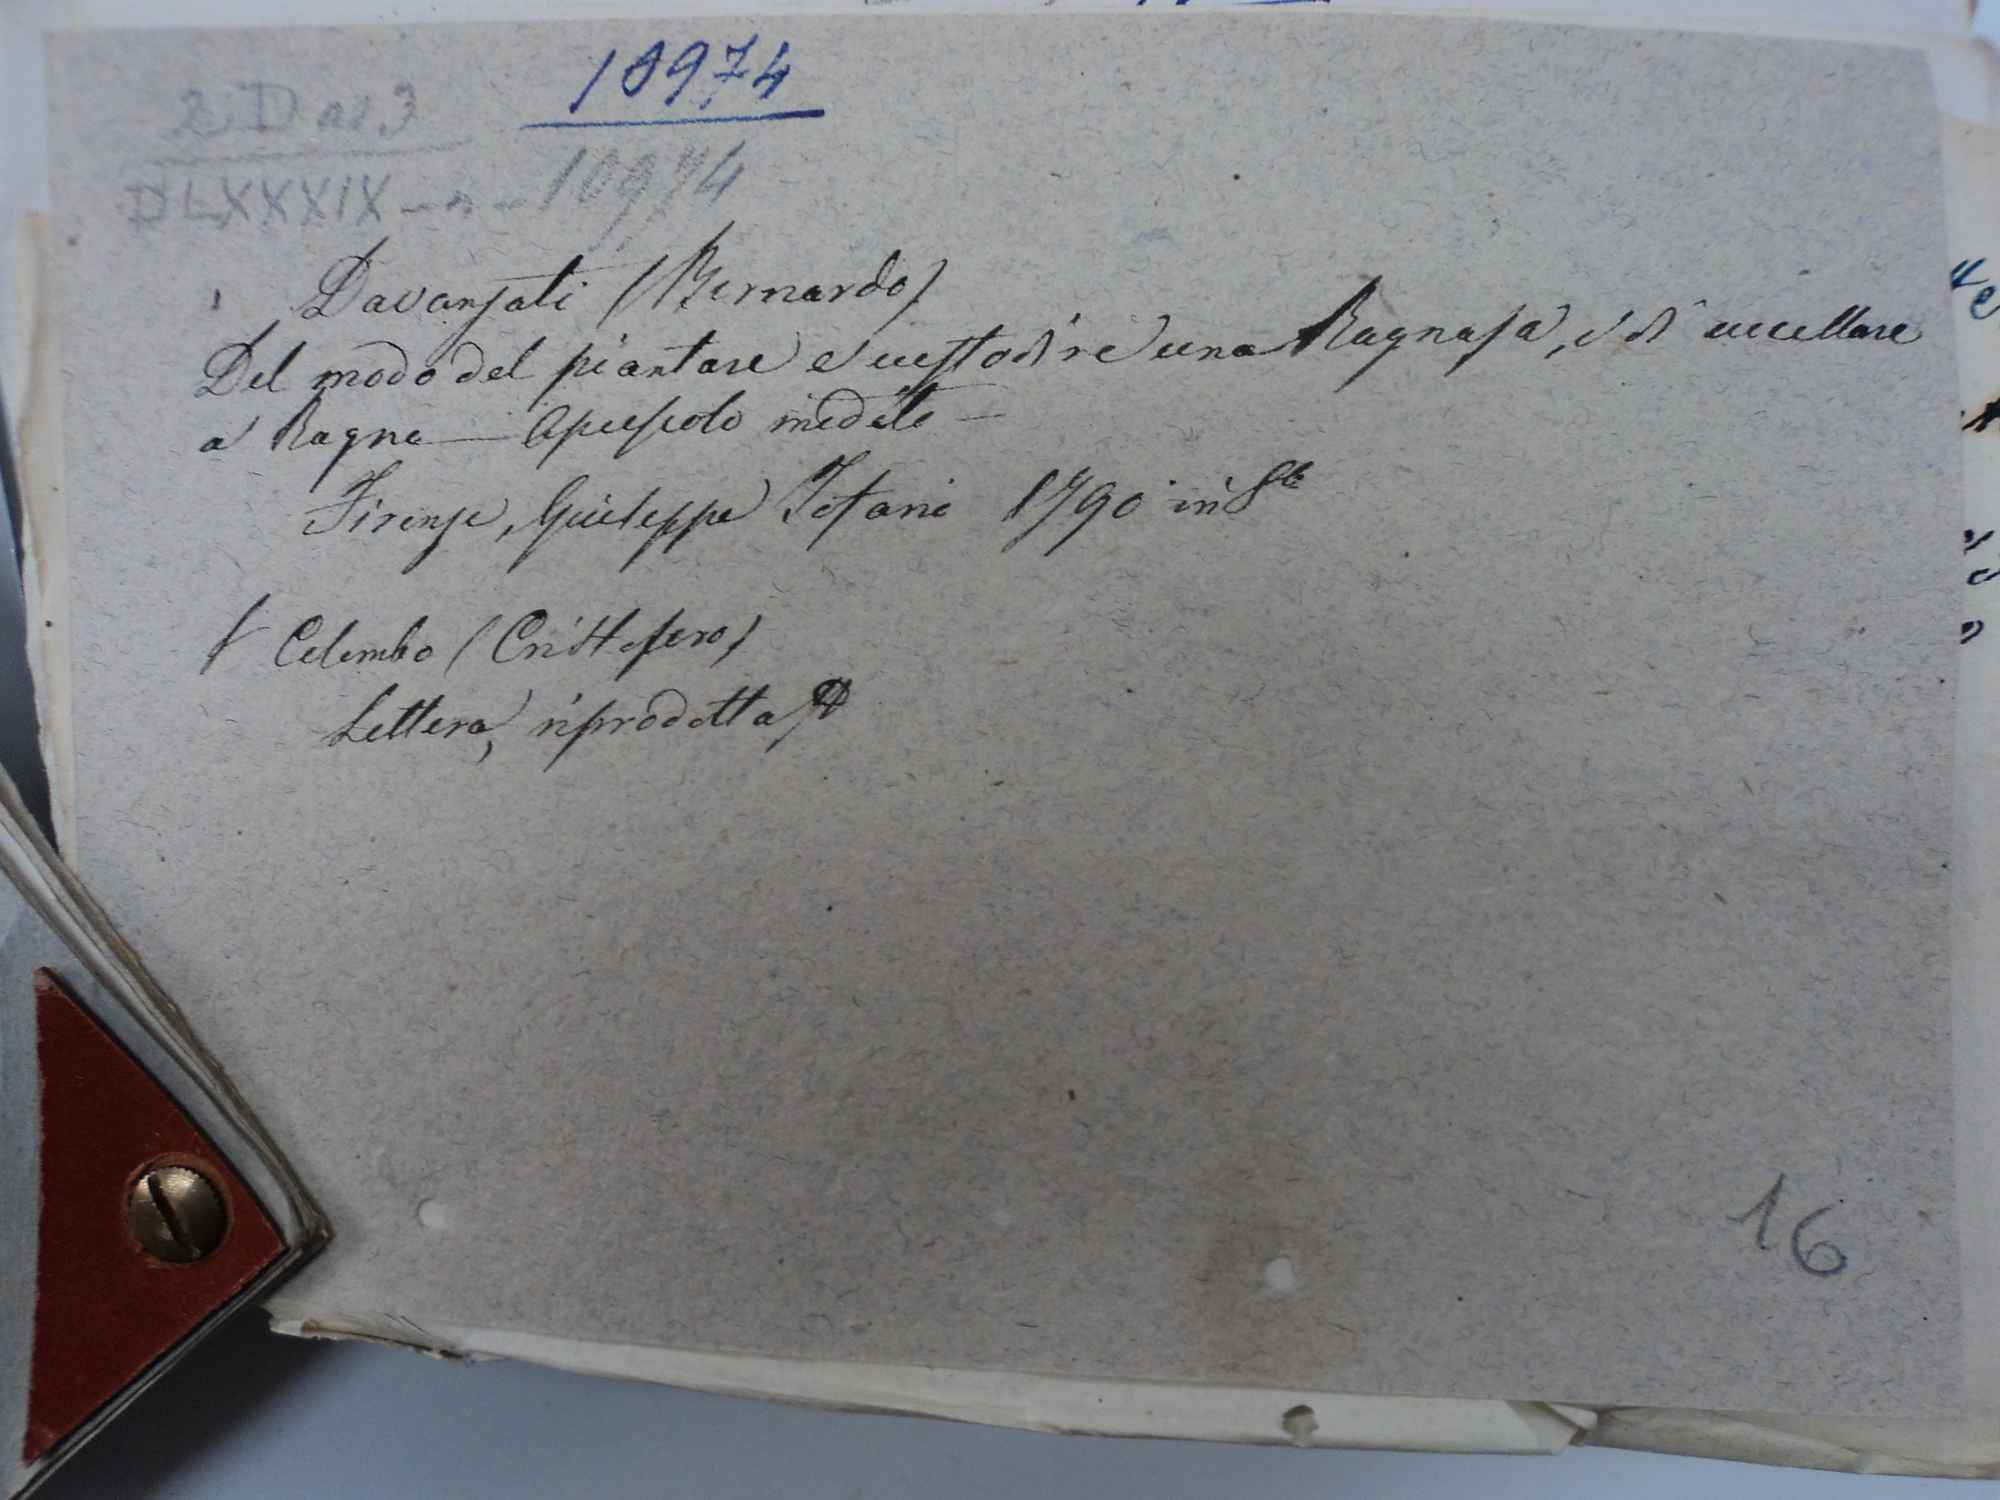 10974
2 Dav 3
DLXXXIX - n - 10974
Davanzati (Bernardo)
Del modo del piantare e custodire una Ragnaja, e di uccellare
a Ragna — Opuscolo inedito —
Firenze, Giuseppe Tofani 1790 in 8º
Colombo (Cristoforo)
Lettera, riprodotta
16